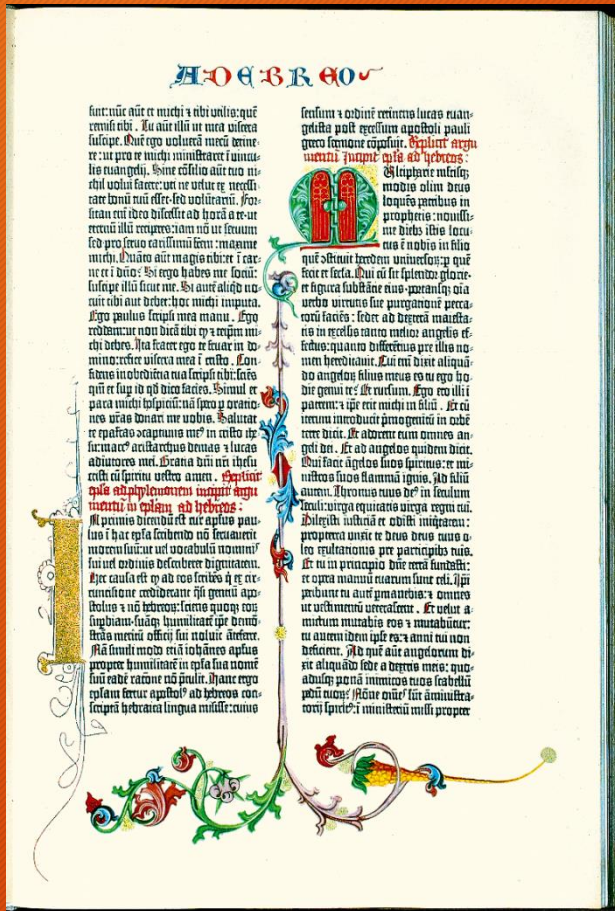 AD EBREOS
sunt: nūc aūt et michi ⁊ tibi utilis: quē
remisi tibi. Tu aūt illū ut mea viscera
suscipe. Quē ego volueram mecū detine-
re: ut pro te michi ministraret ī vincu-
lis euangelij. Sine cōsilio aūt tuo ni-
chil volui facere: uti ne velut ex necessi-
tate bonū tuū esset: sed volūtariū. For-
sitan enī ideo discessit ad horā a te ut
eternū illū reciperes: iam nō ut seruum
sed pro seruo carissimū frēm: maxime
michi. Quāto aūt magis tibi: et ī car-
ne et ī dn̄o? Si ergo habes me sociū:
suscipe illū sicut me. Si aūt aliqd no-
cuit tibi aut debet: hoc michi imputa.
Ego paulus scripsi mea manu. Ego
reddam: ut non dicā tibi ꝙ ⁊ teip̄m mi-
chi debes. Ita frater ego te fruar in do-
mino: refice viscera mea ī cristo. Con-
fidens in obedientia tua scripsi tibi: sciēs
qm̄ et sup id qd dico facies. Simul et
para michi hospiciū: nā spero p oratio-
nes vr̄as donari me vobis. Salutat
te epafras ꝯcaptiuus me⁹ in cristo ihe-
su: marc⁹ aristarchus demas ⁊ lucas
adiutores mei. Gratia dn̄i nr̄i ihesu
cristi cū spiritu vestro amen. Explicit
epl̄a ad phylemonem incipit argu
mentū in epl̄am ad hebreos:
In primis dicendū est cur apl̄us pau-
lus ī hac epl̄a scribendo nō seruauerit
morem suū: ut vel vocabulū nominis
sui vel ordinis describeret dignitatem.
Hec causa est ꝙ ad eos scribēs q̄ ex cir-
cuncisione crediderant q̄si gentiū apo-
stolus ⁊ nō hebreoꝝ: sciens quoqꝫ eoꝝ
supbiam: suāqꝫ humilitatē ip̄e demō-
strās meritū officij sui noluit ānteferre.
Nā simili modo etiā iohānes apl̄us
propter humilitatē in epl̄a sua nomē
suū eadē ratione nō p̄tulit. Hanc ergo
epl̄am fertur apostol⁹ ad hebreos con-
scriptā hebraica lingua misisse: cuius
sensum ⁊ ordinē retinens lucas euan-
gelista post excessum apostoli pauli
greco sermone cōposuit. Explicit argu
mentū Incipit epl̄a ad hebreos:
Multipharie multisqꝫ
modis olim deus
loquēs patribus in
prophetis: nouissi-
me diebꝫ istis locu-
tus ē nobis in filio
quē ꝯstituit heredem uniuersoꝝ: p quē
fecit et secl̄a. Qui cū sit splendor glorie
et figura substātie eius: portansqꝫ oīa
verbo virtutis sue purgationē pecca-
torū faciēs: sedet ad dexterā maiesta-
tis in excelsis tanto melior angelis ef-
fectus: quanto differētius pre illis no-
men hereditauit. Cui enī dixit aliquā-
do angeloꝝ filius meus es tu ego ho-
die genui te? Et rursum. Ego ero illi ī
patrem: ⁊ ip̄e erit michi in filiū. Et cū
iterum introducit p̄mogenitū in orbē
terre dicit. Et adorent eum omnes an-
geli dei. Et ad angelos quidem dicit.
Qui facit āgelos suos spiritus: et mi-
nistros suos flammā ignis. Ad filiū
autem. Thronus tuus de⁹ in seculum
seculi: virga equitatis virga regni tui.
Dilexisti iusticiā et odisti iniqtatem:
propterea unxit te deus deus tuus o-
leo exultationis pre participibꝫ tuis.
Et tu in principio dn̄e terrā fundasti:
et opera manuū tuarum sunt celi. Ip̄i
peribunt tu aūt p̄manebis: ⁊ omnes
ut vestimentū veterascent. Et velut a-
mictum mutabis eos ⁊ mutabūtur:
tu autem idem ip̄se es: ⁊ anni tui non
deficient. Ad quē aūt angelorum di-
xit aliquādo sede a dextris meis: quo-
adusqꝫ ponā inimicos tuos scabellū
pedū tuoꝝ? Nōne om̄s sūt āministra-
torij spirit⁹: ī ministeriū missi propter